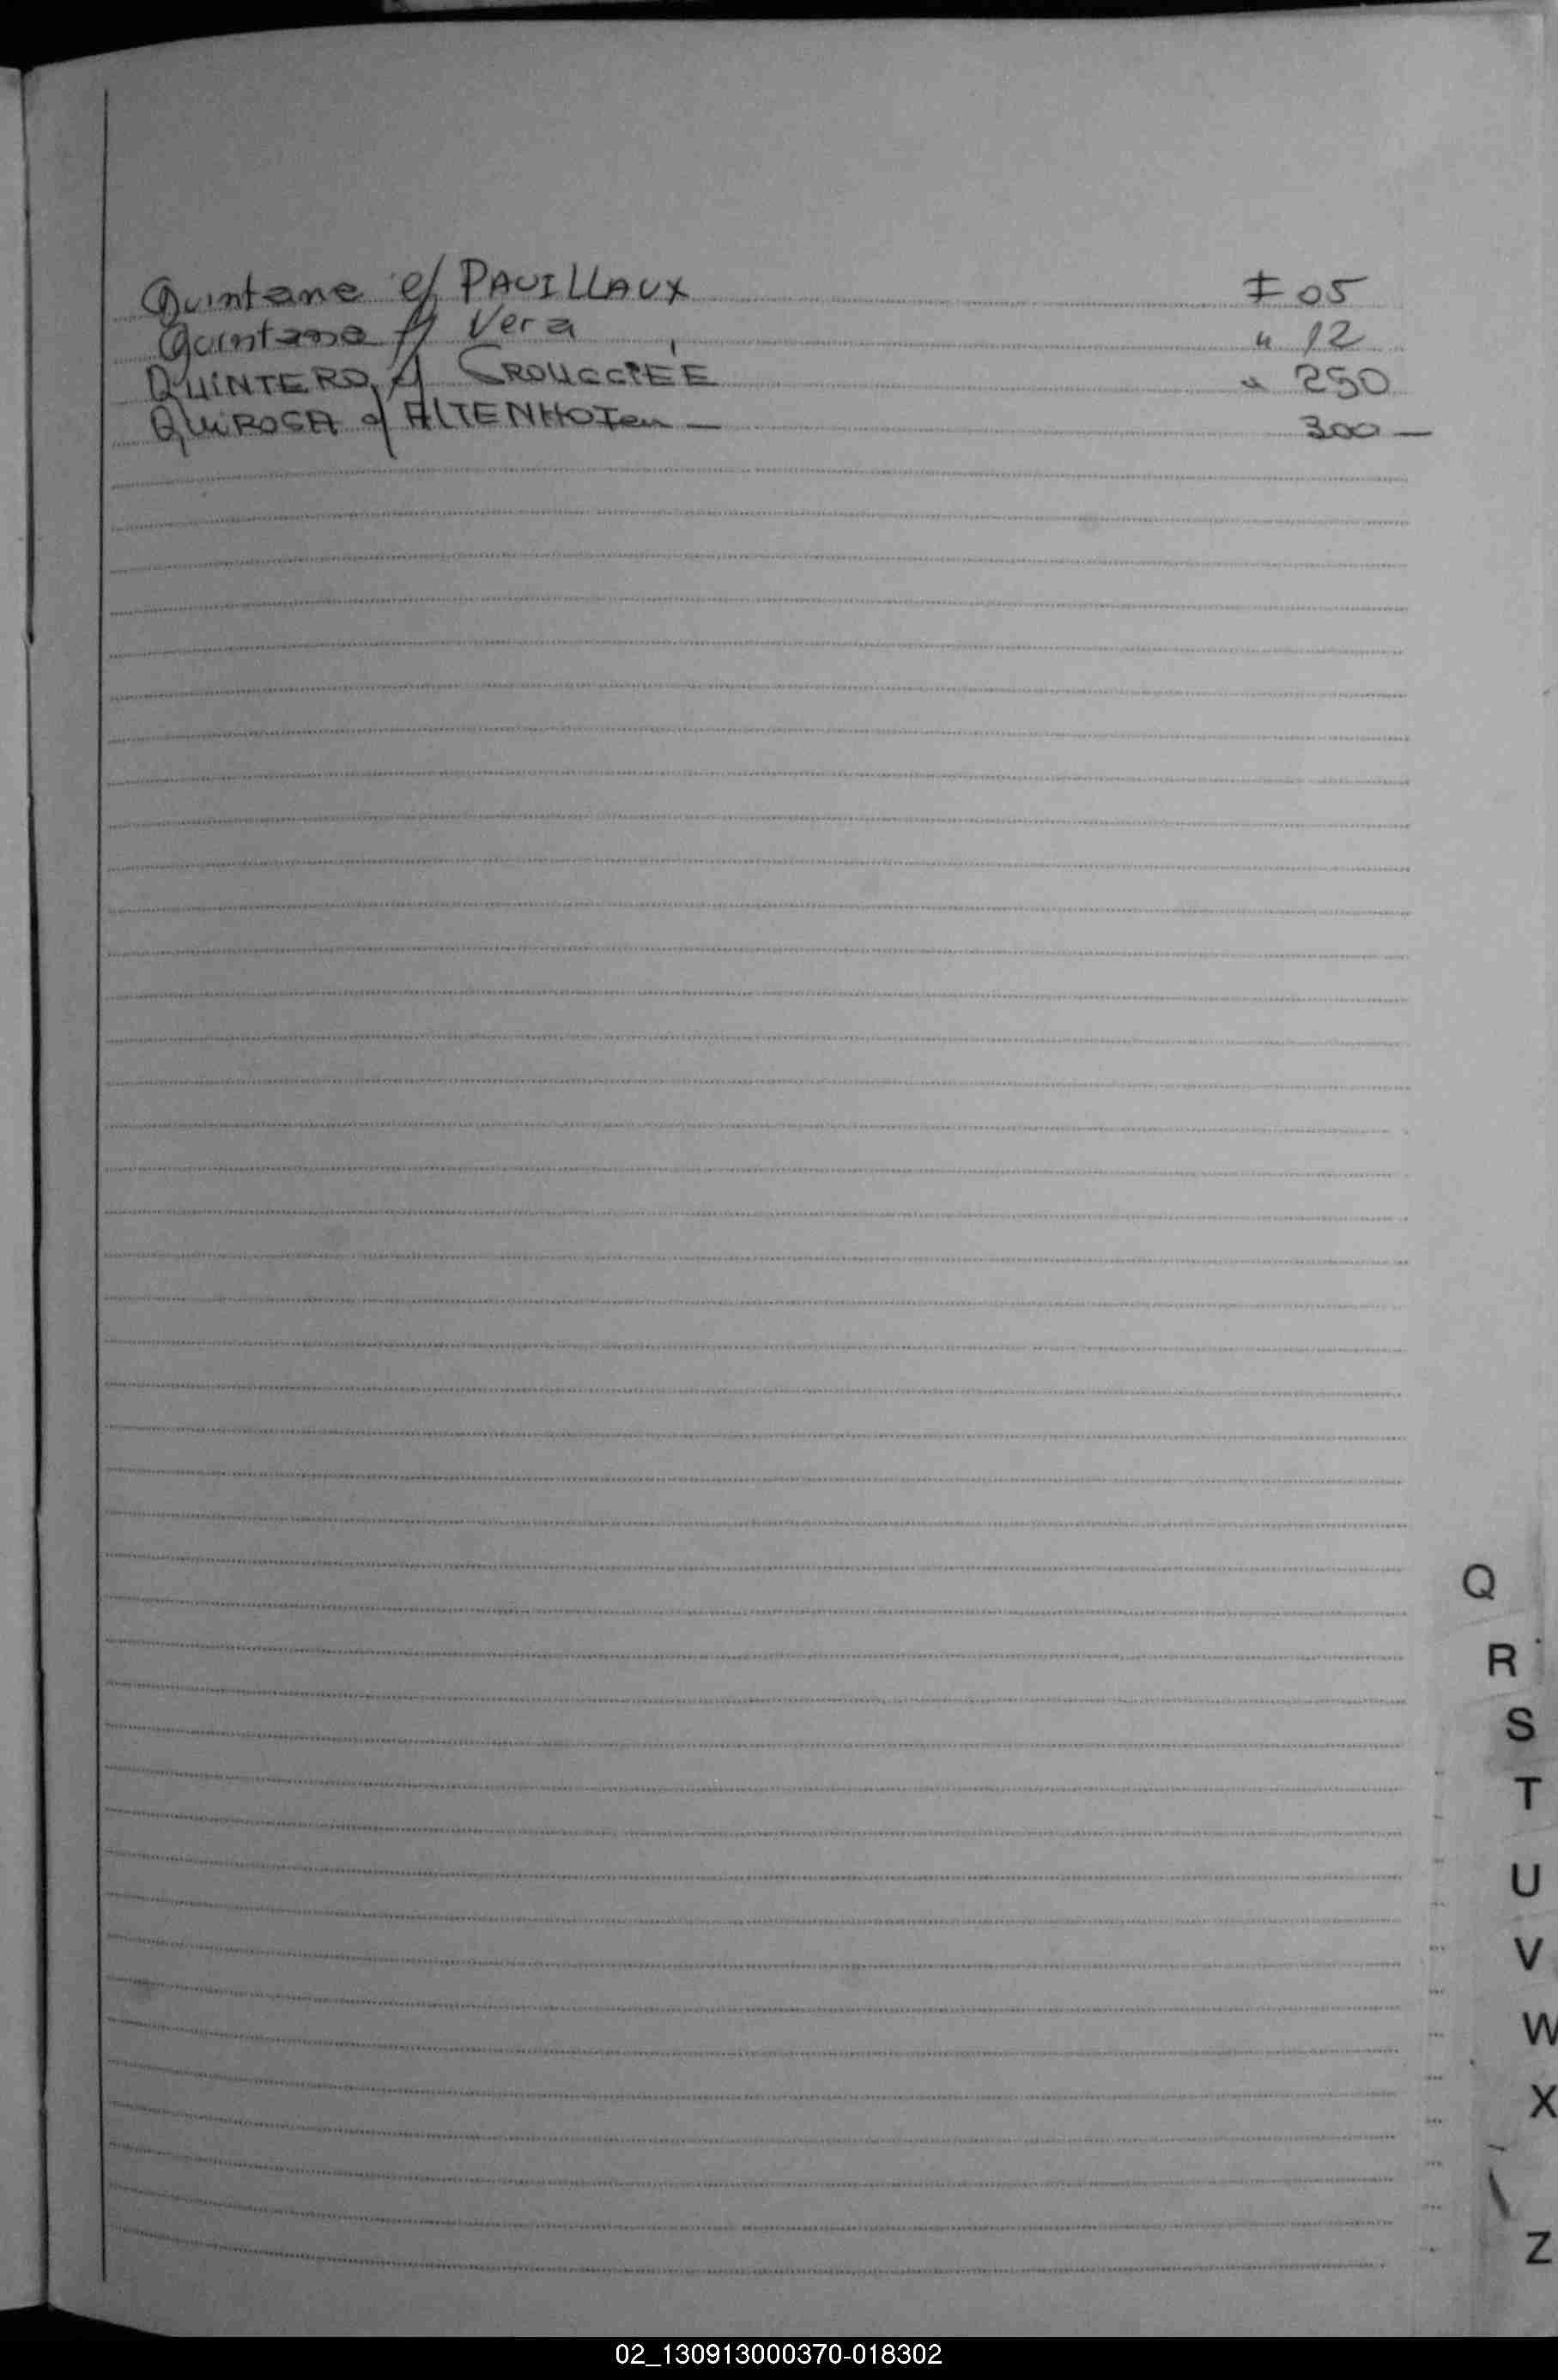 Quintana c/ PAVILLAUX F 05
Quintana c/ Vera " 12
QUINTERO c/ " 250
QUIROGA c/ ALTENHOFEN — 300 —
Q
R
S
T
U
V
W
X
Z
02_130913000370-018302